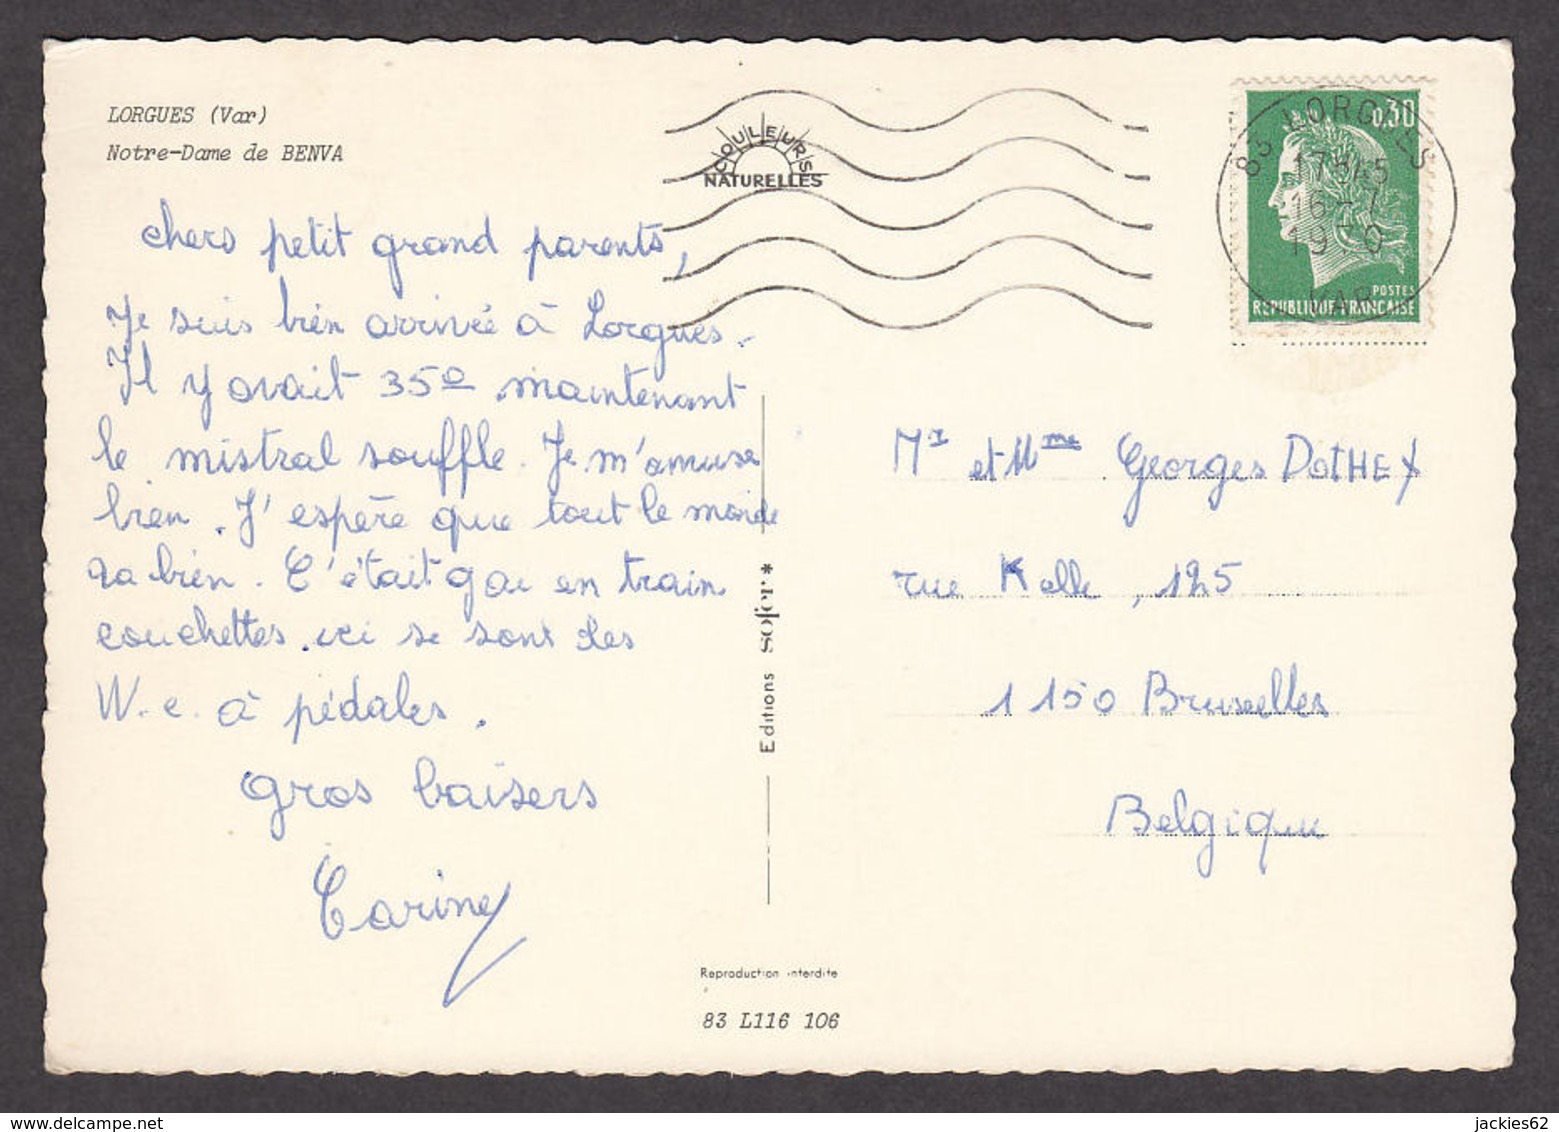 LORGUES (Var)
Notre-Dame de BENVA
COULEURS
NATURELLES
83 LORGUES
17H45
16-7
1970
VAR
0,30
POSTES
REPUBLIQUE FRANCAISE
chers petit grand parents,
Je suis bien arrivée à Lorgues.
Il y avait 35° maintenant
le mistral souffle. Je m'amuse
bien. J'espère que tout le monde
va bien. C'était gai en train
couchettes. ici se sont des
W.c. à pédales.
Gros baisers
Carine
Mr et Mme Georges DOTHEY
rue Kelle, 125
1150 Bruxelles
Belgique
Editions sofer.*
Reproduction interdite
83 L116 106
delcampe.net
jackies62